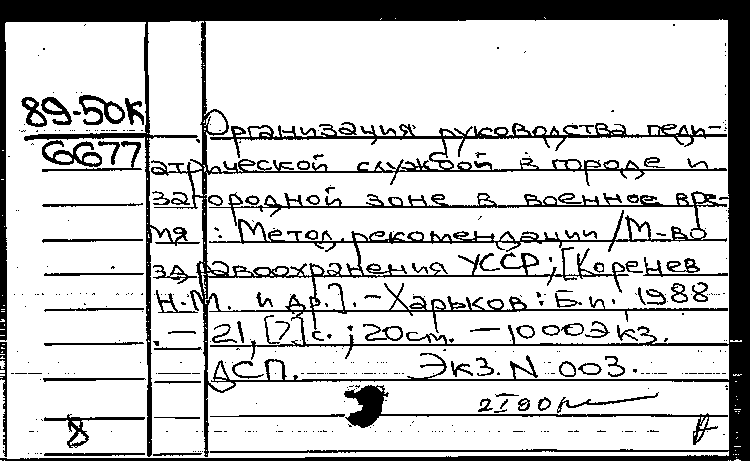 89-50К
6677
Организация руководства педи-
атрической службой в городе и
загородной зоне в военное вре-
мя : Метод. рекомендации / М-во
здравоохранения УССР; [Коренев
Н.М. и др.]. - Харьков : Б.и., 1988
. - 21, [7] с. ; 20 см. - 1000 экз.
ДСП. Экз. N 003.
8